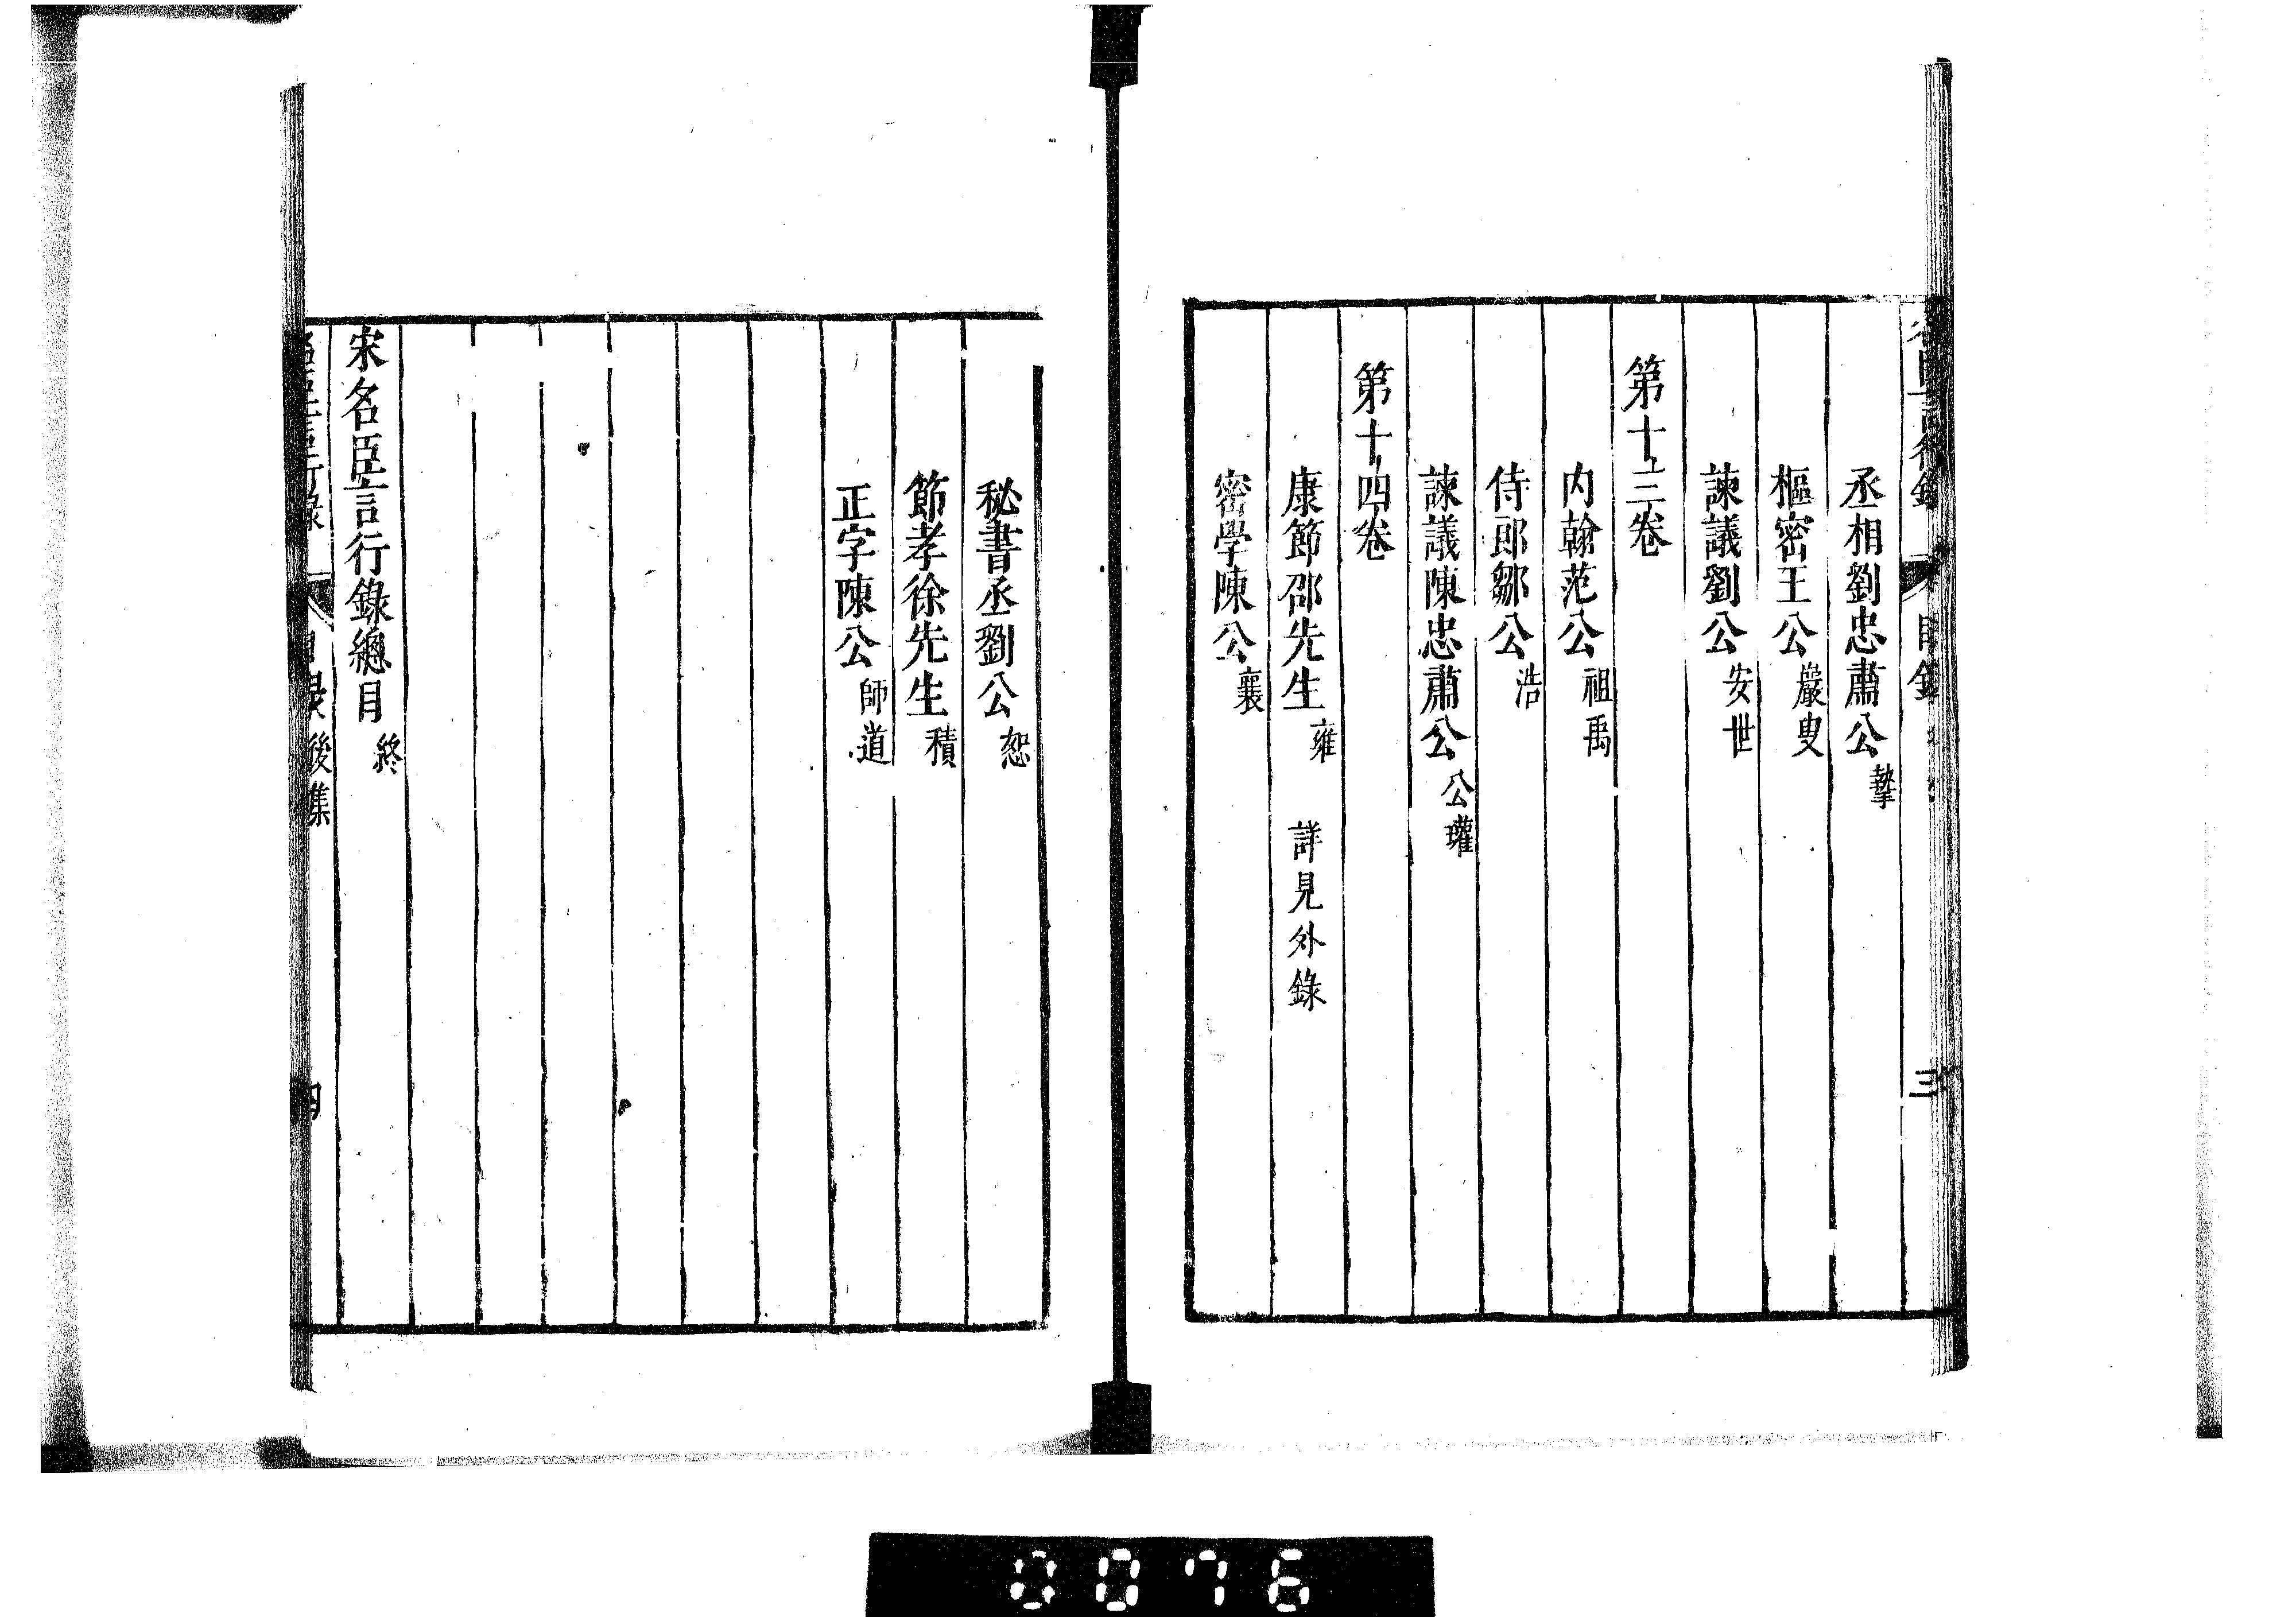 名臣言行錄 目錄 三
丞相劉忠肅公 摯
樞密王公 巖叟
諫議劉公 安世
第十三卷
内翰范公 祖禹
侍郎鄒公 浩
諫議陳忠肅公 公瓘
第十四卷
康節邵先生 雍 詳見外錄
密學陳公 襄
秘書丞劉公 恕
節孝徐先生 積
正字陳公 師道
宋名臣言行錄總目 終
名臣言行錄 目錄 後集 四
0076